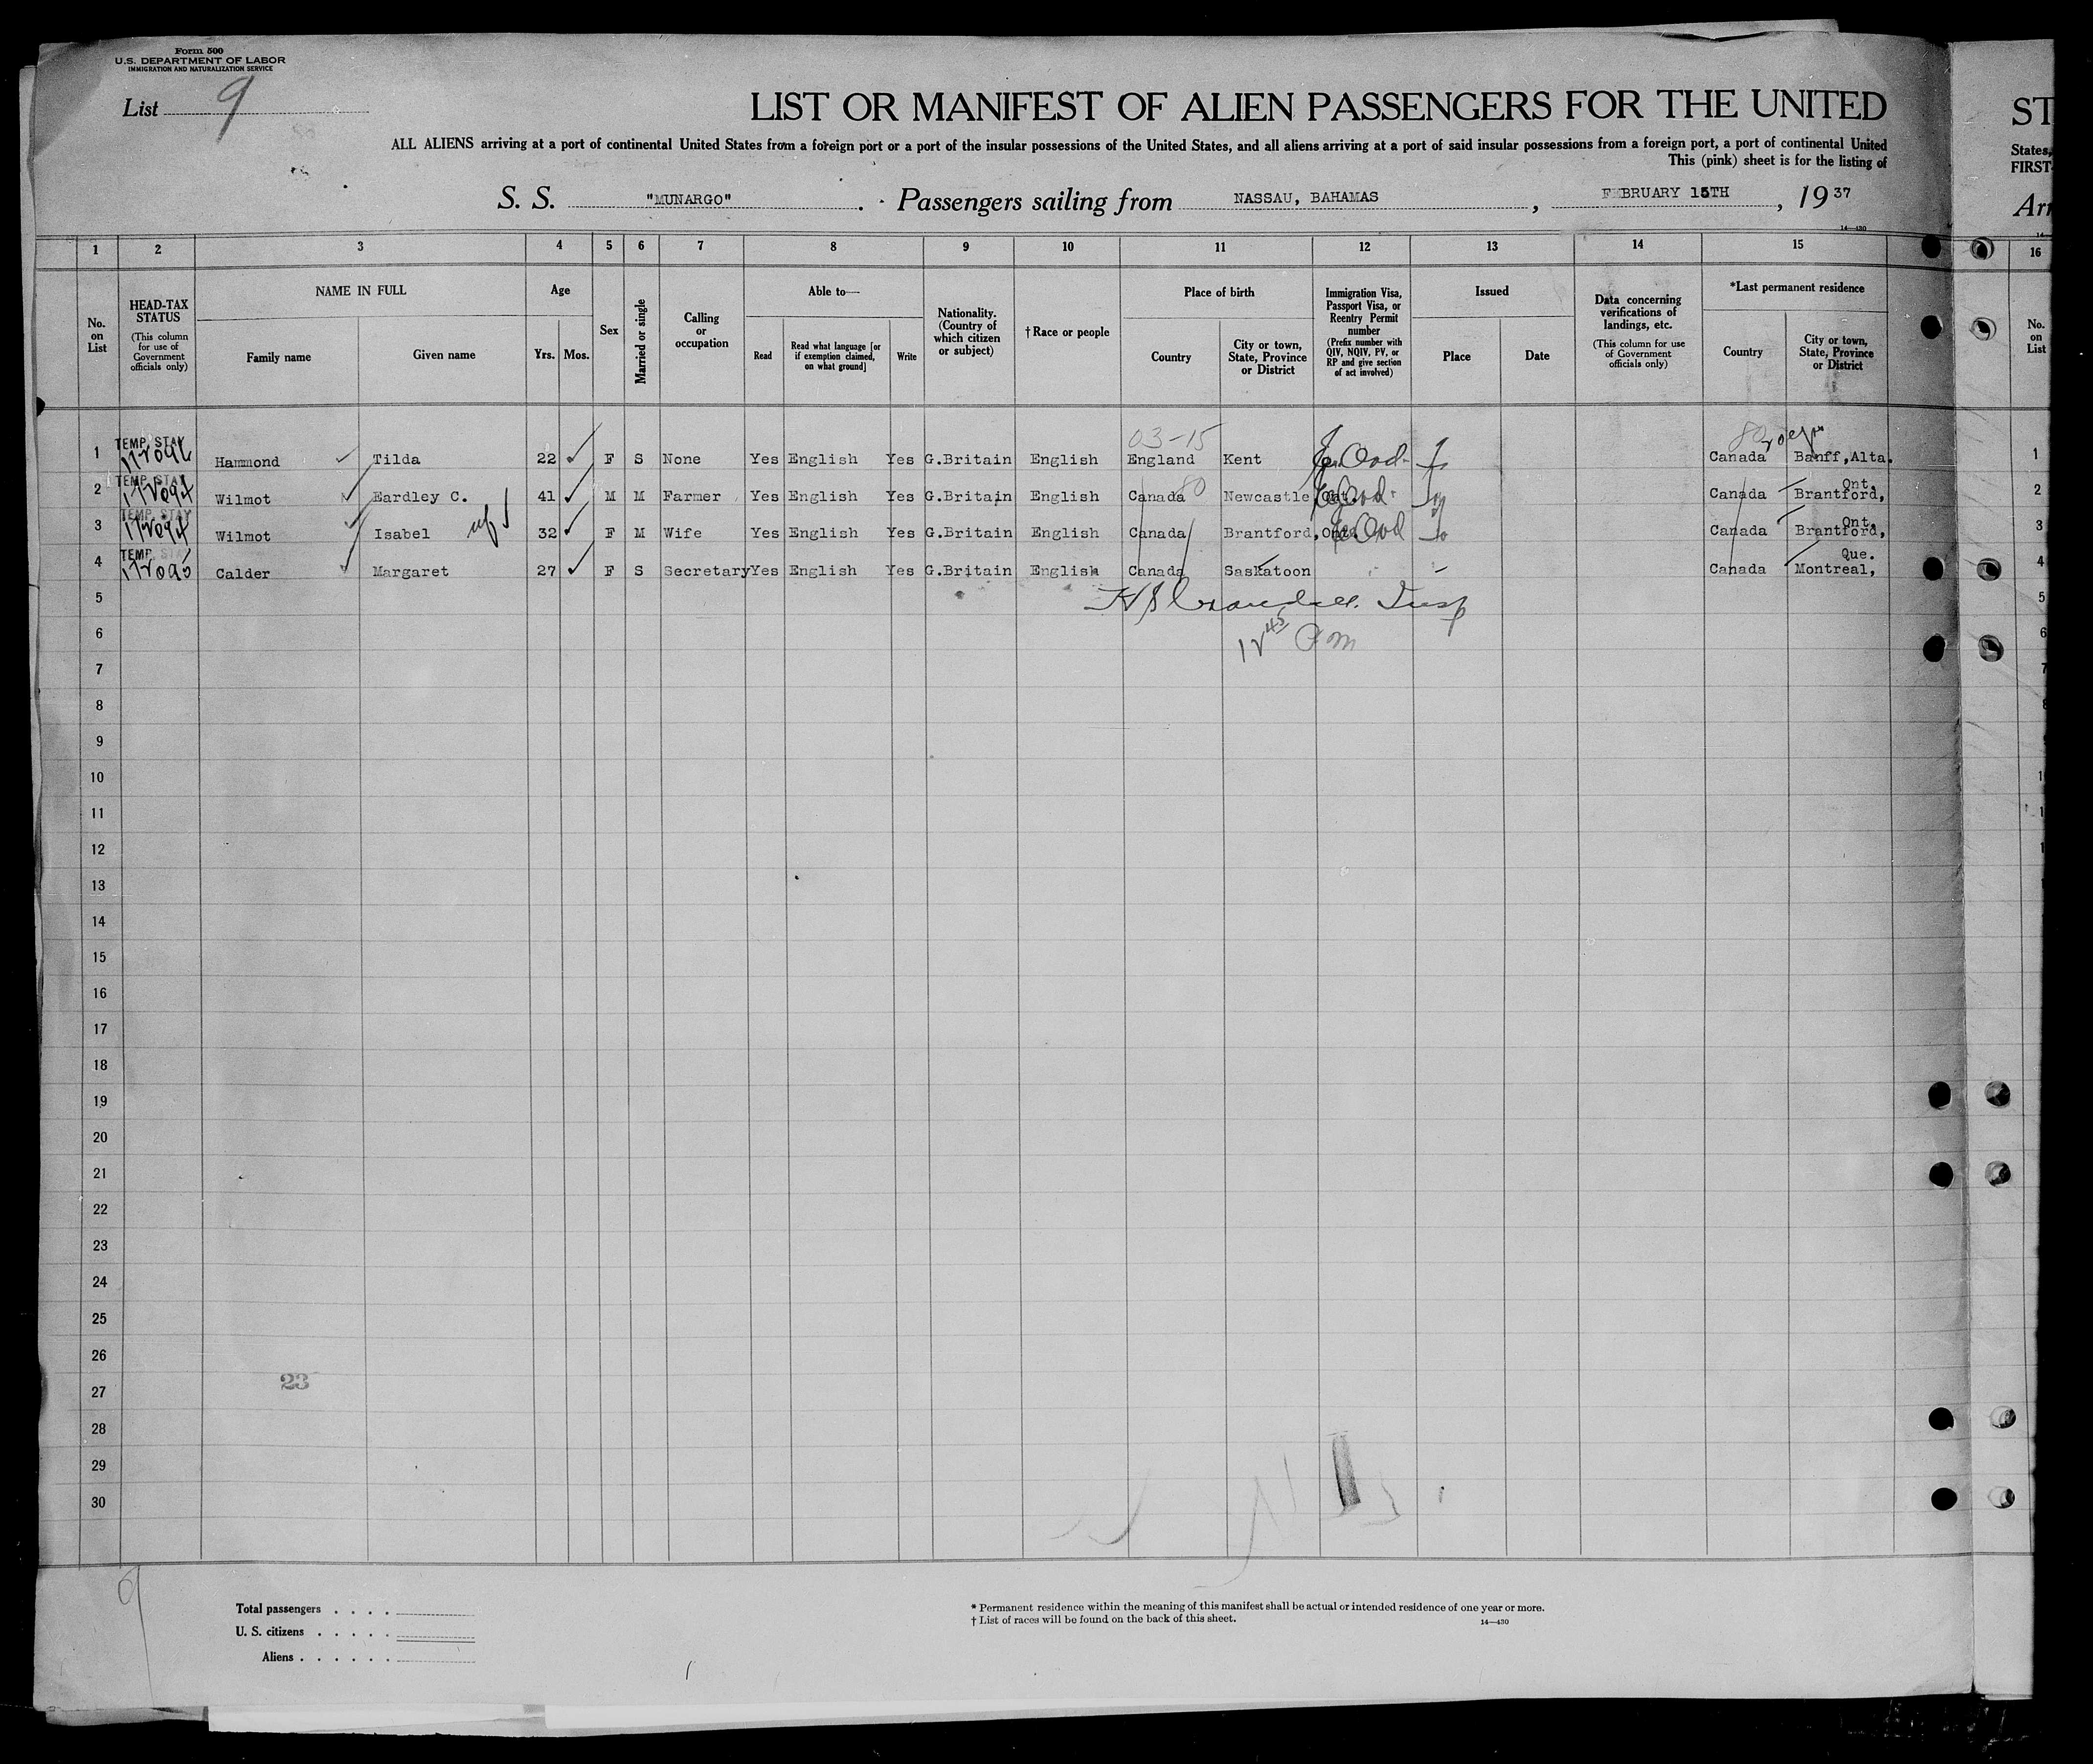 Form 500
U.S. DEPARTMENT OF LABOR
IMMIGRATION AND NATURALIZATION SERVICE
List 9
LIST OR MANIFEST OF ALIEN PASSENGERS FOR THE UNITED
ST
ALL ALIENS arriving at a port of continental United States from a foreign port or a port of the insular possessions of the United States, and all aliens arriving at a port of said insular possessions from a foreign port, a port of continental United
States,
This (pink) sheet is for the listing of
FIRST
S. S. "MUNARGO" . Passengers sailing from NASSAU, BAHAMAS , FEBRUARY 15TH , 1937
Arr
14—430
1 2 3 4 5 6 7 8 9 10 11 12 13 14 15 16
No. on List
HEAD-TAX STATUS
(This column for use of Government officials only)
NAME IN FULL
Family name
Given name
Age
Yrs.
Mos.
Sex
Married or single
Calling or occupation
Able to—
Read
Read what language [or if exemption claimed, on what ground]
Write
Nationality. (Country of which citizen or subject)
† Race or people
Place of birth
Country
City or town, State, Province or District
Immigration Visa, Passport Visa, or Reentry Permit number
(Prefix number with QIV, NQIV, PV, or RP and give section of act involved)
Issued
Place
Date
Data concerning verifications of landings, etc.
(This column for use of Government officials only)
*Last permanent residence
Country
City or town, State, Province or District
No. on List
03-15
1 TEMP. STAY Hammond Tilda 22 F S None Yes English Yes G.Britain English England Kent Canada Banff,Alta. 1
2 TEMP. STAY Wilmot Eardley C. 41 M M Farmer Yes English Yes G.Britain English Canada Newcastle, Ont. Canada Brantford, Ont. 2
3 TEMP. STAY Wilmot Isabel 32 F M Wife Yes English Yes G.Britain English Canada Brantford, Ont. Canada Brantford, Ont. 3
4 TEMP. STAY Calder Margaret 27 F S Secretary Yes English Yes G.Britain English Canada Saskatoon Canada Montreal, Que. 4
5 5
6 12 45 PM 6
7 7
8
9
10
11
12
13
14
15
16
17
18
19
20
21
22
23
24
25
26
23
27
28
29
30
9
Total passengers . . . .
U. S. citizens . . . . .
Aliens . . . . . .
* Permanent residence within the meaning of this manifest shall be actual or intended residence of one year or more.
† List of races will be found on the back of this sheet.
14—430